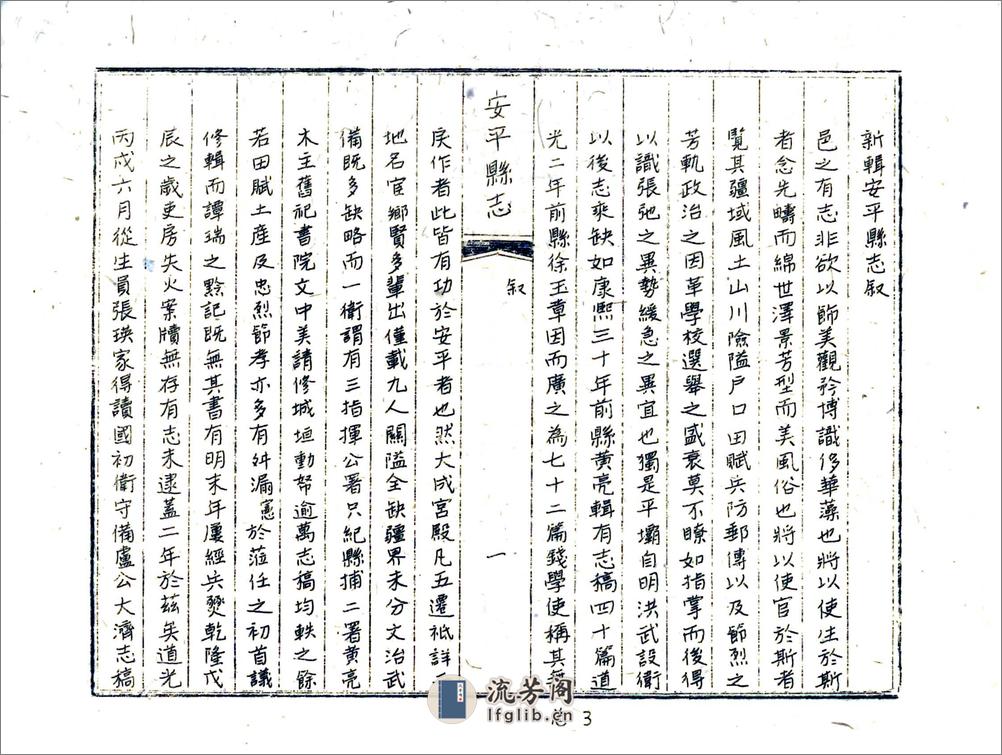 新輯安平縣志叙
邑之有志非欲以飾美觀矜博識侈華藻也將以使生於斯
者念先疇而綿世澤景芳型而美風俗也將以使官於斯者
覽其疆域風土山川險隘戶口田賦兵防郵傳以及節烈之
芳軌政治之因革學校選舉之盛衰莫不瞭如指掌而後得
以識張弛之異勢緩急之異宜也獨是平壩自明洪武設衛
以後志乘缺如康熙三十年前縣黃亮輯有志稿四十篇道
光二年前縣徐玉章因而廣之為七十二篇錢學使稱其
安平縣志
叙
一
庚作者此皆有功於安平者也然大成宮殿凡五遷祗詳
地名宦鄉賢多輩出僅載九人關隘全缺疆界未分文治武
備既多缺略而一衛謂有三指揮公署只紀縣捕二署黃亮
木主舊祀書院文中美請修城垣動帑逾萬志稿均軼之餘
若田賦土產及忠烈節孝亦多有舛漏憲於蒞任之初首議
修輯而譚瑞之黔記既無其書有明末年屢經兵燹乾隆戊
辰之歲吏房失火案牘無存有志未逮蓋二年於茲矣道光
丙戌六月從生員張瑛家得讀國初衛守備盧公大濟志稿
流芳阁
lfglib.cn
3